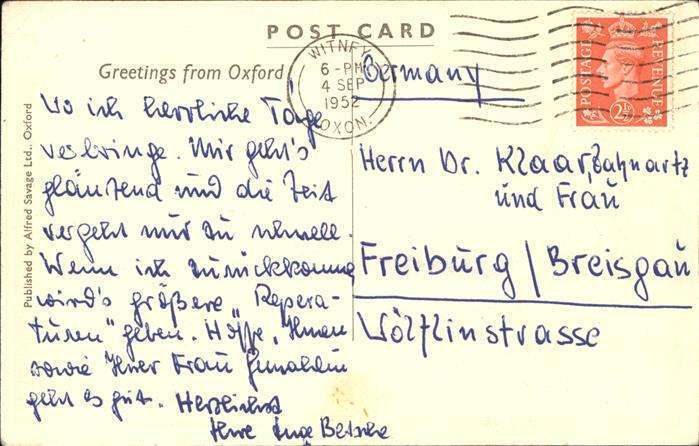 POST CARD
Greetings from Oxford
WITNEY
6 - PM
4 SEP
1952
OXON.
POSTAGE
REVENUE
2½D
Published by Alfred Savage Ltd., Oxford
Wo ich herrliche Tage
verbringe. Mir geht's
glänzend und die Zeit
vergeht nur zu schnell.
Wenn ich zurückkomme
wird's größere „Repera-
turen" geben. Hoffe, Ihnen
sowie Ihrer Frau Gemahlin
geht es gut. Herzlichst
Ihre Inge
Germany
Herrn Dr. Klaar, Zahnartz
und Frau
Freiburg / Breisgau
Wölflinstrasse